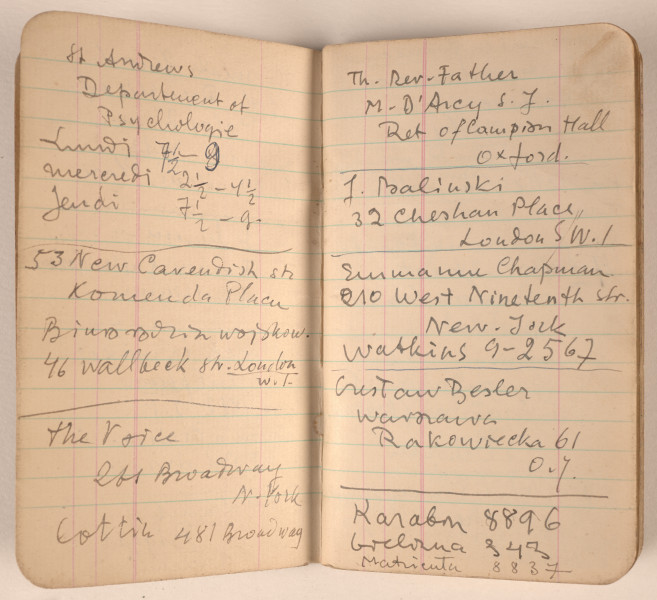 St Andrews
Department of
Psychologie
Lundi 7½ – 9
mercredi 2½ – 4½
Jeudi 7½ – 9.
53 New Cavendish str
Komenda Placu
Biuro rodzin wojskow.
46 Wallbeck str. London
W. 1.
the Voice
Broadway
N-York
Cottin 481 Broadway
Th. Rev. Father
M. D'Arcy S. J.
Ret of Campion Hall
Oxford.
J. Balinski
32 Cheshan Place,
London S W. 1
Emmanu Chapman
210 West Nineteenth str.
New-York
Watkins 9-2567
Gustaw Besler
Warszawa
Rakowiecka 61
0.7.
Karabon 8896
343
8837